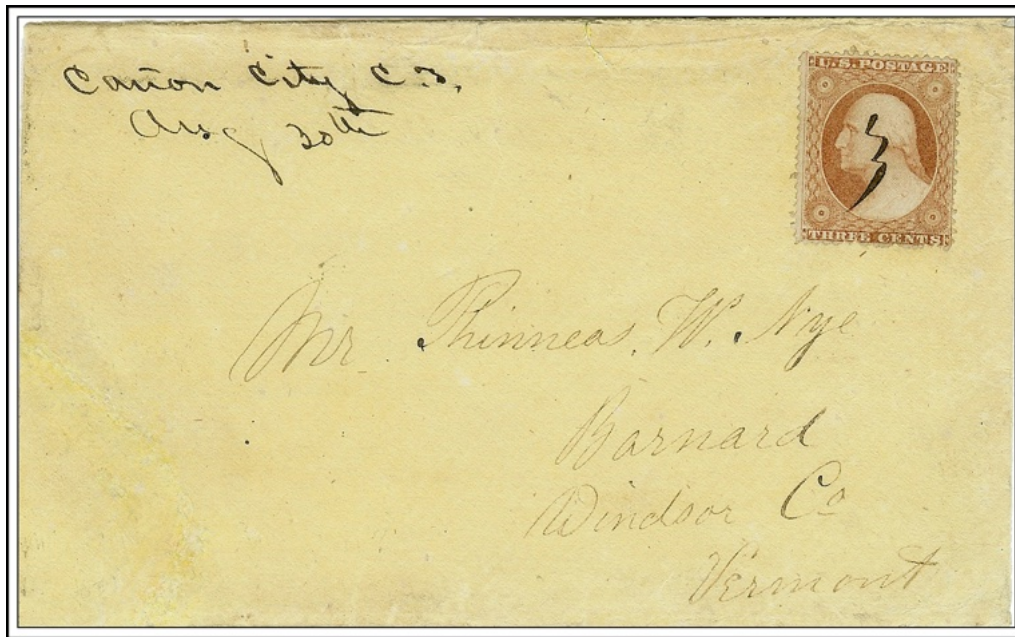 Cañon City C.T.
Aug 30th
U.S. POSTAGE
3
THREE CENTS
Mr. Phinneas. W. Nye
Barnard
Windsor Co
Vermont